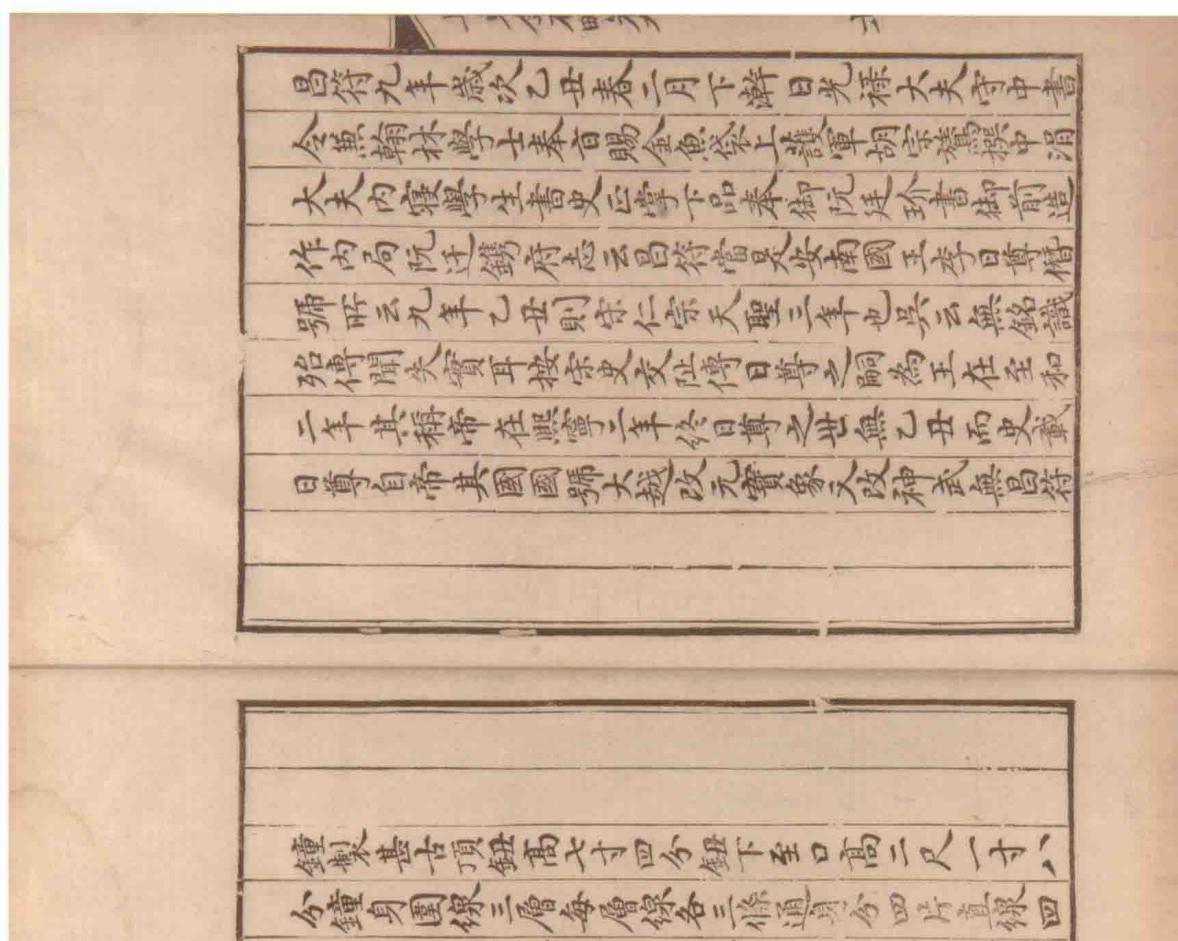 昌符九年歲次乙丑春二月下澣日光祿大夫守中書
令兼翰林學士奉旨賜金魚袋上護軍胡宗鷟撰中涓
大夫内寢學生書史正掌下品奉御阮廷玠書御前造
作内局阮迁鐫府志云昌符當是安南國王李日尊僭
號所云九年乙丑則宋仁宗天聖三年也吳云無銘識
殆傳聞失實耳按宋史交阯傳日尊之嗣為王在至和
二年其稱帝在熙寧二年終日尊之世無乙丑而史載
日尊自帝其國國號大越改元寶象又改神武無昌符
鐘製甚古頂鈕高七寸四分鈕下至口高二尺一寸八
分鐘身圍線三層每層線各三條通身分四片直線四